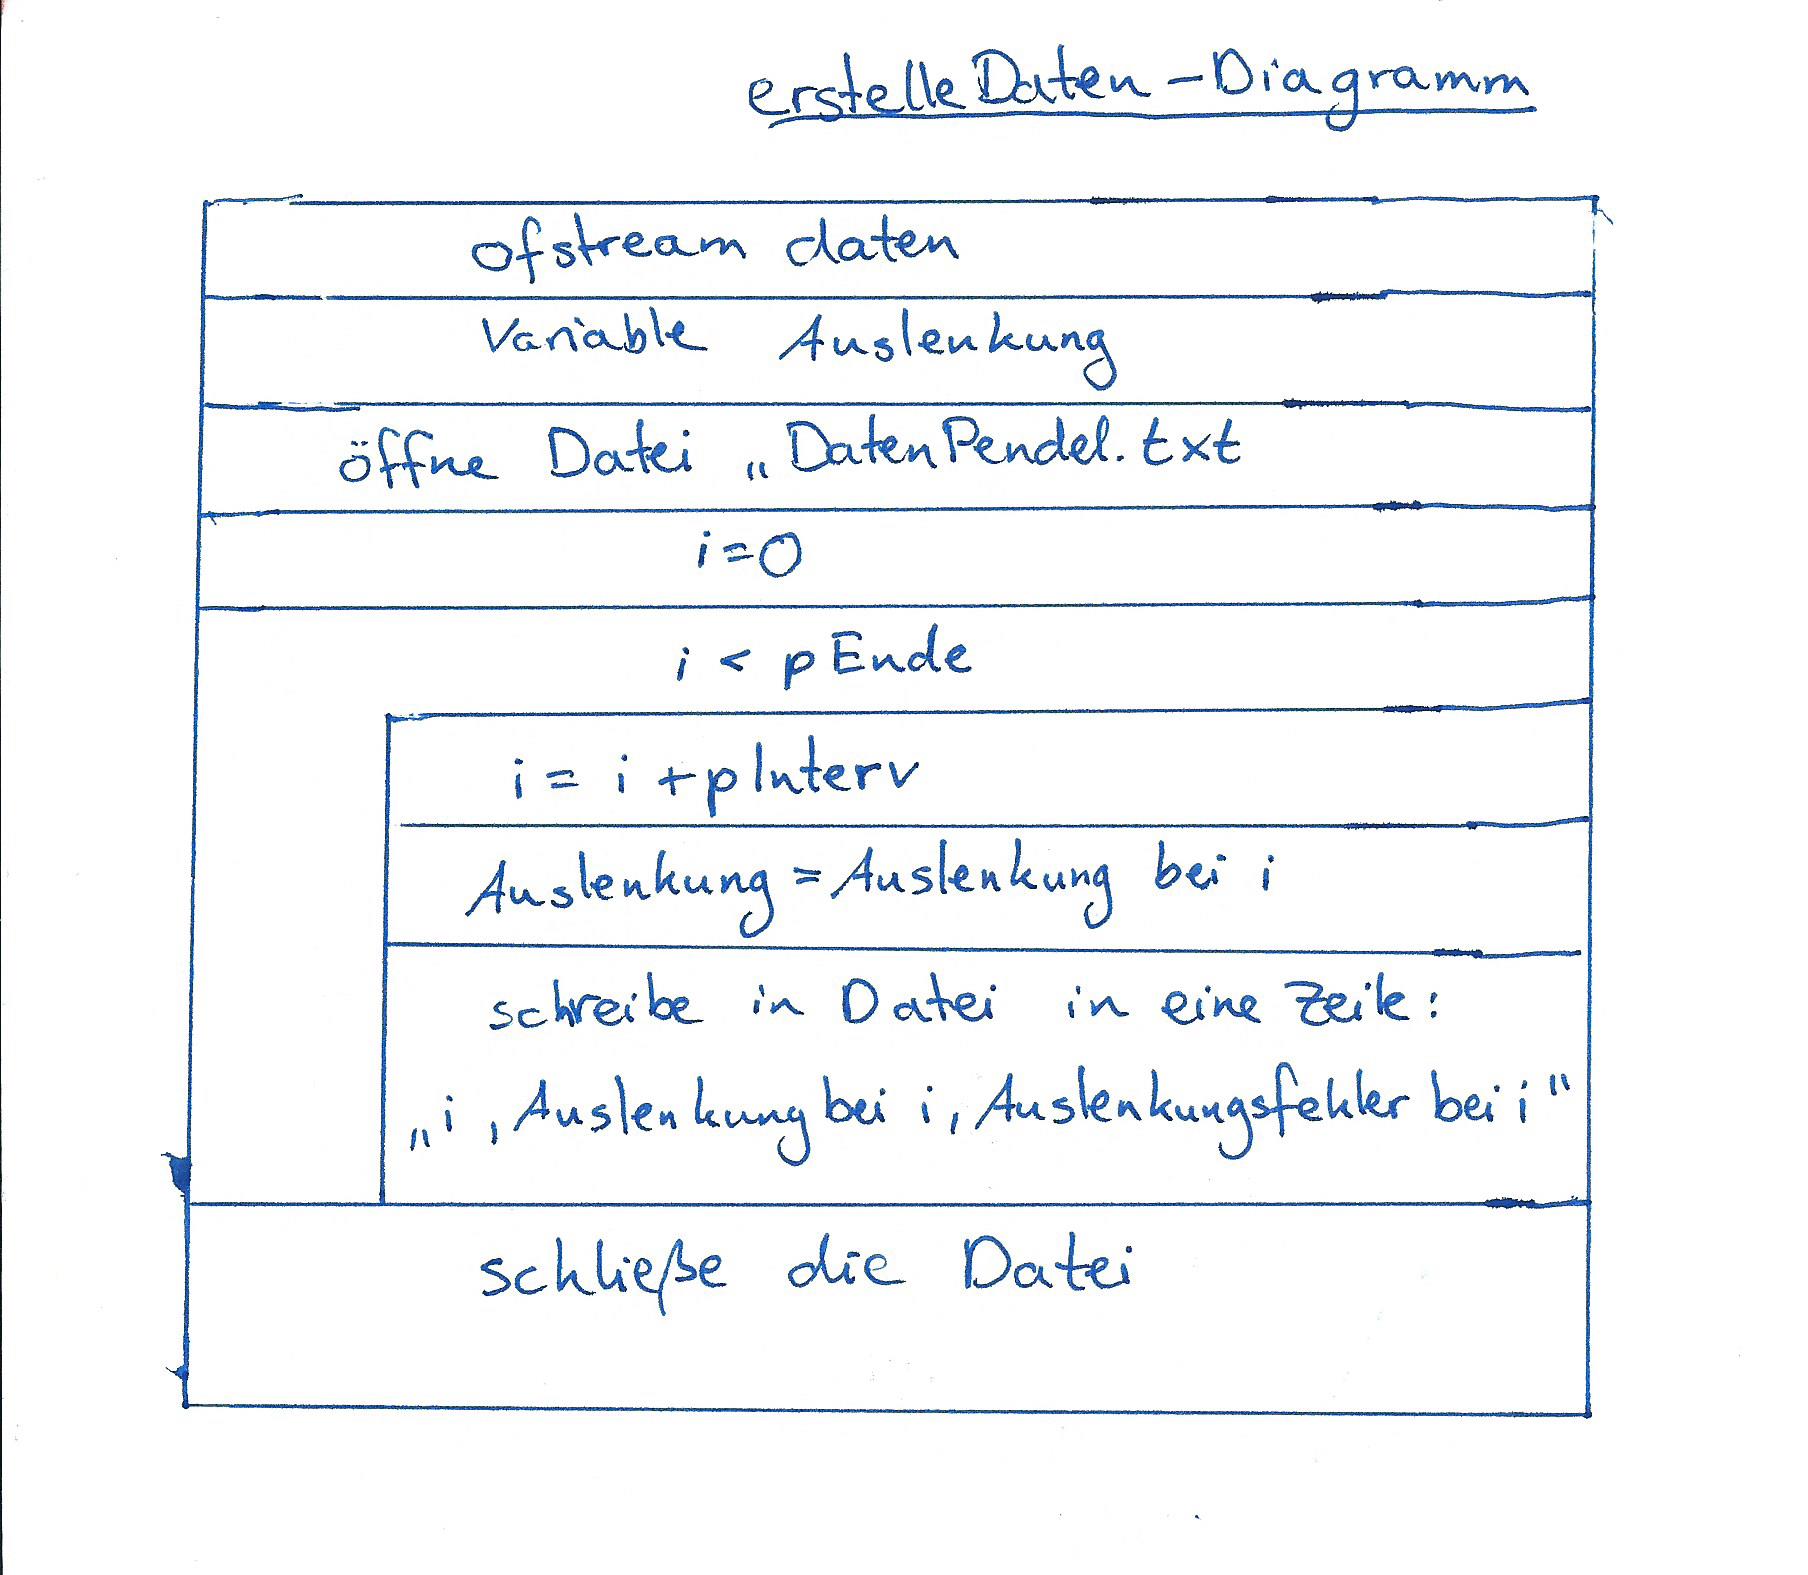 erstelleDaten-Diagramm
ofstream daten
Variable Auslenkung
öffne Datei „DatenPendel.txt
i=0
i < pEnde
i = i + pInterv
Auslenkung = Auslenkung bei i
schreibe in Datei in eine Zeile:
„i, Auslenkung bei i, Auslenkungsfehler bei i"
schließe die Datei